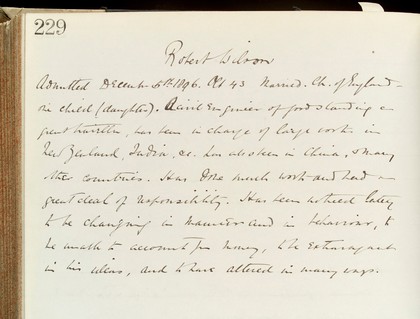 229
Robert Wilson
Admitted December 5th 1896. Æt 43 Married. Ch. of England
one child (daughter). A civil Engineer of good standing a
great traveller, has been in charge of large works in
New Zealand, India, &c. has also been in China, & many
other countries. Has done much work and had a
great deal of responsibility. Has been noticed lately
to be changing in manner and in behaviour, to
be unable to account for money, to be extravagant
in his ideas, and to have altered in many ways.